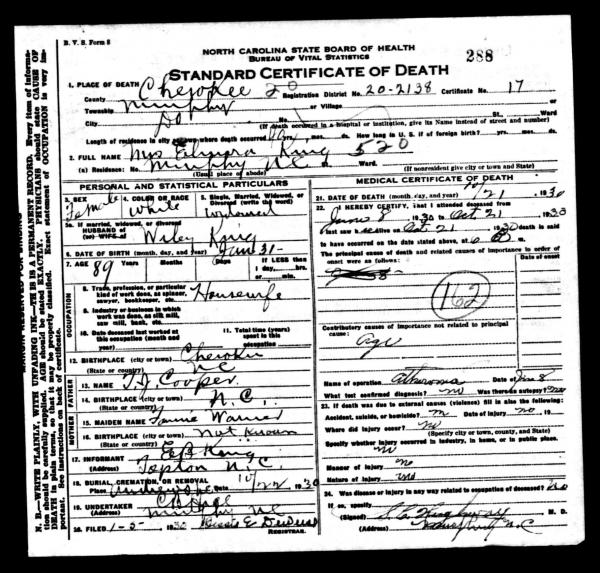 B. V. S. Form 8
NORTH CAROLINA STATE BOARD OF HEALTH
BUREAU OF VITAL STATISTICS
288
STANDARD CERTIFICATE OF DEATH
1. PLACE OF DEATH Cherokee 20 Registration District No. 20-2138 Certificate No. 17
County
Township Murphy or Village
City Do No. St., Ward
(If death occurred in a hospital or institution, give its NAME instead of street and number)
Length of residence in city or town where death occurred yrs. mos. ds. How long in U. S. if of foreign birth? yrs. mos. ds.
2. FULL NAME Mrs King 520
(a) Residence: No. Murphy N.C. Ward.
(Usual place of abode) (If nonresident give city or town and State)
PERSONAL AND STATISTICAL PARTICULARS
3. SEX Female
4. COLOR OR RACE White
5. Single, Married, Widowed, or Divorced (write the word) Widowed
5a. If married, widowed, or divorced
HUSBAND of
(or) WIFE of Wiley King
6. DATE OF BIRTH (month, day, and year) Jan 31-
7. AGE 89 Years Months Days If LESS than 1 day, hrs. or min.
OCCUPATION
8. Trade, profession, or particular kind of work done, as spinner, sawyer, bookkeeper, etc. Housewife
9. Industry or business in which work was done, as silk mill, saw mill, bank, etc.
10. Date deceased last worked at this occupation (month and year)
11. Total time (years) spent in this occupation
12. BIRTHPLACE (city or town) Cherokee
(State or country) NC
FATHER
13. NAME T.J. Cooper
14. BIRTHPLACE (city or town) N.C.
(State or country)
MOTHER
15. MAIDEN NAME Warner
16. BIRTHPLACE (city or town) Not Known
(State or country)
17. INFORMANT King
(Address) Topton N.C.
18. BURIAL, CREMATION, OR REMOVAL
Place Date 10/22 1930
19. UNDERTAKER
(Address) Murphy NC
20. FILED 1-5- 1930
REGISTRAR.
MEDICAL CERTIFICATE OF DEATH
21. DATE OF DEATH (month, day, and year) 10/21 1930
22. I HEREBY CERTIFY, That I attended deceased from
June 8 1930 to Oct 21 1930
I last saw h alive on Oct 21 1930 death is said
to have occurred on the date stated above, at 6 m.
The principal cause of death and related causes of importance in order of onset were as follows:
Date of onset
162
Contributory causes of importance not related to principal cause:
age
Name of operation atheroma Date of June 8
What test confirmed diagnosis? no Was there an autopsy? no
23. If death was due to external causes (violence) fill in also the following:
Accident, suicide, or homicide? no Date of injury no 19
Where did injury occur? no
(Specify city or town, county, and State)
Specify whether injury occurred in industry, in home, or in public place.
no
Manner of injury no
Nature of injury no
24. Was disease or injury in any way related to occupation of deceased? no
If so, specify
(Signed) M. D.
(Address) N.C
N. B.—WRITE PLAINLY, WITH UNFADING INK—THIS IS A PERMANENT RECORD. Every item of information should be carefully supplied. AGE should be stated EXACTLY. PHYSICIANS should state CAUSE OF DEATH in plain terms, so that it may be properly classified. Exact statement of OCCUPATION is very important. See instructions on back of certificate.
MARGIN RESERVED FOR BINDING